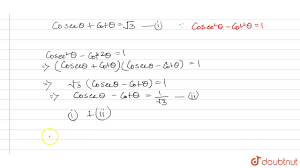 Cosecθ + Cotθ = √3 — (i) ∵ Cosec²θ - Cot²θ = 1
Cosec²θ - Cot²θ = 1
⇒ (Cosecθ + Cotθ)(Cosecθ - Cotθ) = 1
⇒ √3 (Cosecθ - Cotθ) = 1
⇒ Cosecθ - Cotθ = 1/√3 — (ii)
(i) + (ii)
doubtnut